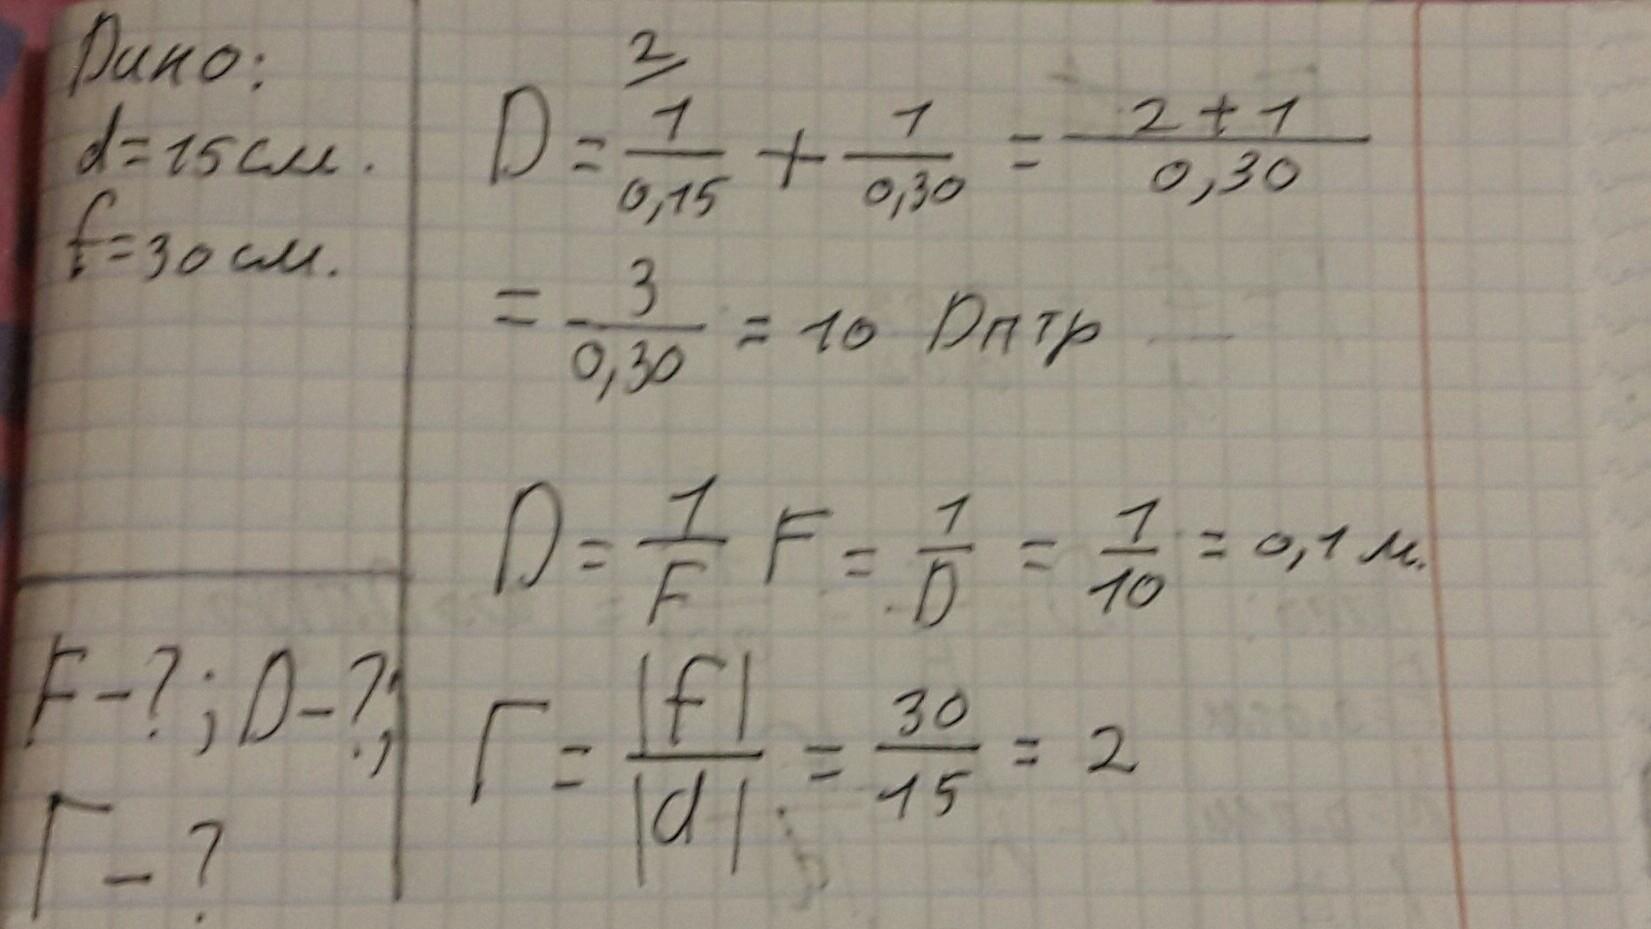 Дано:
d=15см.
f=30см.
F-?; D-?;
Г-?
2
D = 1/0,15 + 1/0,30 = 2+1/0,30
= 3/0,30 = 10 Dптр
D = 1/F F = 1/D = 1/10 = 0,1 м.
Г = |f|/|d| = 30/15 = 2